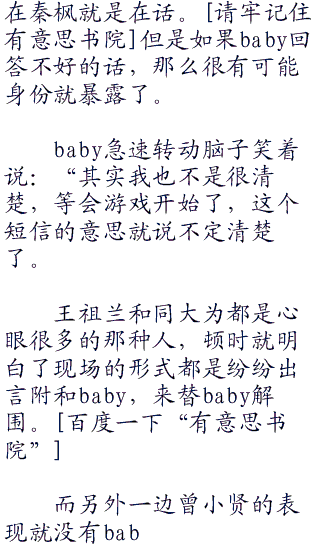 在秦枫就是在话。[请牢记住
有意思书院]但是如果baby回
答不好的话，那么很有可能
身份就暴露了。
baby急速转动脑子笑着
说：“其实我也不是很清
楚，等会游戏开始了，这个
短信的意思就说不定清楚
了。
王祖兰和同大为都是心
眼很多的那种人，顿时就明
白了现场的形式都是纷纷出
言附和baby，来替baby解
围。[百度一下“有意思书
院”]
而另外一边曾小贤的表
现就没有bab